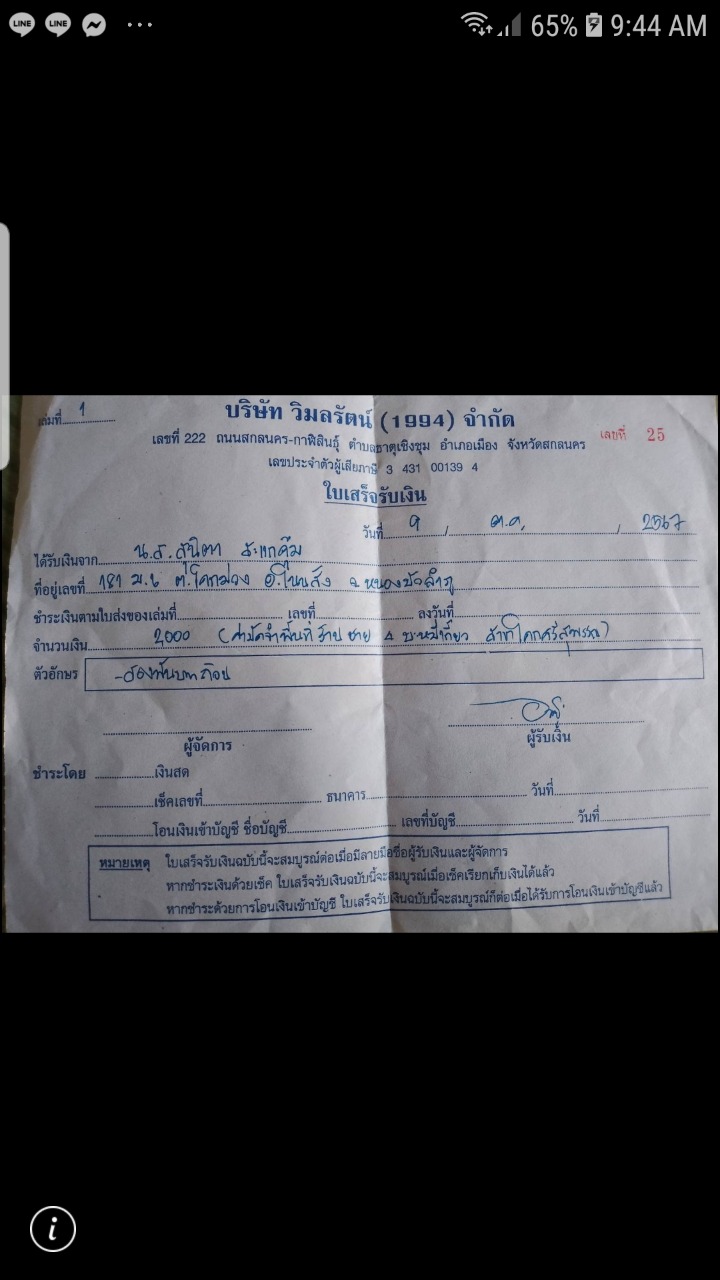 LINE LINE 65% 9:44 AM
เล่มที่ 1
บริษัท วิมลรัตน์ (1994) จำกัด
เลขที่ 222 ถนนสกลนคร-กาฬสินธุ์ ตำบลธาตุเชิงชุม อำเภอเมือง จังหวัดสกลนคร
เลขที่ 25
เลขประจำตัวผู้เสียภาษี 3 431 00139 4
ใบเสร็จรับเงิน
วันที่ 9 / ต.ค. / 2567
ได้รับเงินจาก น.ส. สุนิตา
ที่อยู่เลขที่ 181 ม.6 ต.โคกม่วง อ.โนนสัง จ.หนองบัวลำภู
ชำระเงินตามใบส่งของเล่มที่ เลขที่ ลงวันที่
จำนวนเงิน 2000 (ค่ามัดจำพื้นที่ ขาย บะหมี่เกี๊ยว
ตัวอักษร -สองพันบาทถ้วน
ผู้จัดการ ผู้รับเงิน
ชำระโดย เงินสด
เช็คเลขที่ ธนาคาร วันที่
โอนเงินเข้าบัญชี ชื่อบัญชี เลขที่บัญชี วันที่
หมายเหตุ ใบเสร็จรับเงินฉบับนี้จะสมบูรณ์ต่อเมื่อมีลายมือชื่อผู้รับเงินและผู้จัดการ
หากชำระเงินด้วยเช็ค ใบเสร็จรับเงินฉบับนี้จะสมบูรณ์เมื่อเช็คเรียกเก็บเงินได้แล้ว
หากชำระด้วยการโอนเงินเข้าบัญชี ใบเสร็จรับเงินฉบับนี้จะสมบูรณ์ก็ต่อเมื่อได้รับการโอนเงินเข้าบัญชีแล้ว